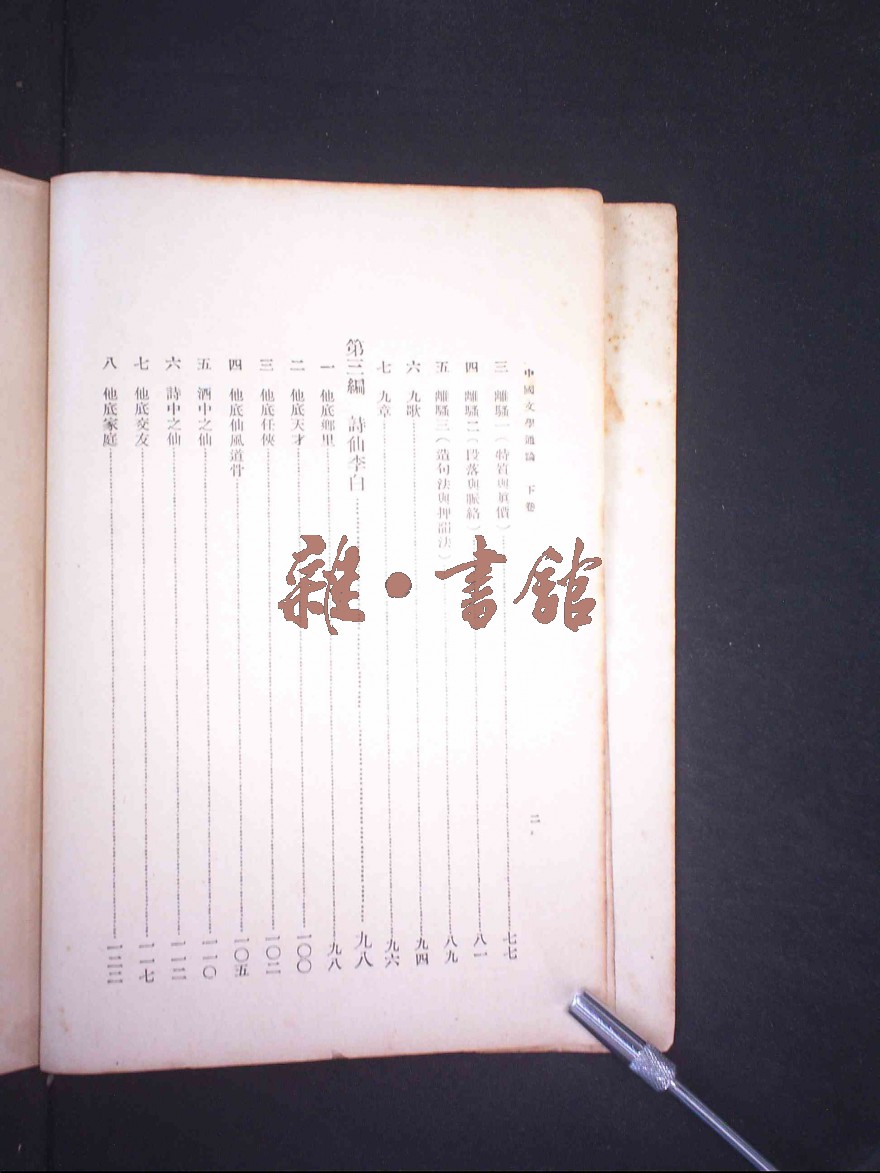 中國文學通論 下卷 二
三 離騷一(特質與眞價) 七七
四 離騷二(段落與脈絡) 八一
五 離騷三(造句法與押韻法) 八九
六 九歌 九四
七 九章 九六
第三編 詩仙李白 九八
一 他底鄉里 九八
二 他底天才 一〇〇
三 他底任俠 一〇二
四 他底仙風道骨 一〇五
五 酒中之仙 一一〇
六 詩中之仙 一一二
七 他底交友 一一七
八 他底家庭 一二二
雜·書館